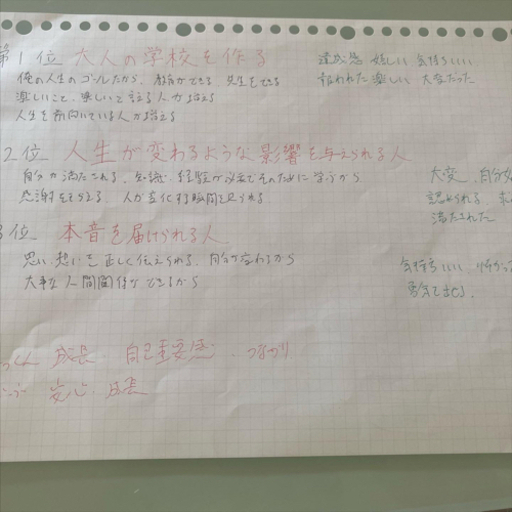 第1位 大人の学校を作る
達成感 嬉しい 気持ちいい
俺の人生のゴールだから、 教育ができる 先生をできる
報われた 楽しい 大変だった
楽しいこと、楽しいと言える人が増える
人生を前向いている人が増える
2位 人生が変わるような影響を与えられる人
自分が満たされる、知識、経験が必要でそのために学ぶから
大変、自分
感謝をもらえる、人が変化する瞬間を見られる
認められる
満たされた
位 本音を届けられる人
思い、想いを正しく伝えられる、自分が変わるから
気持ちいい
大事な人間関係ができるから
勇気て出し
成長、自己重要感、つながり
安心、成長